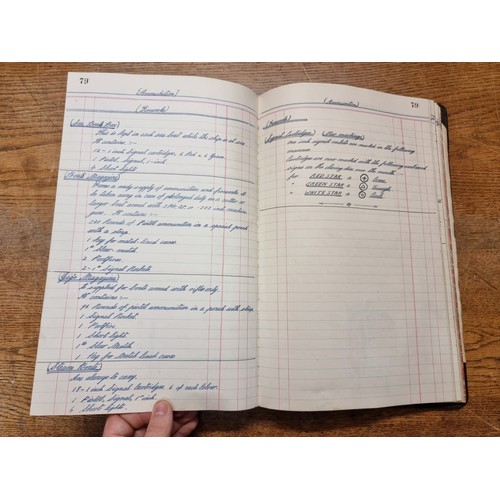 79
(Ammunition)
(Fireworks)
(Sea Boat Box)
This is kept in each sea boat while the ship is at sea.
It contains :-
12 - 1 inch Signal Cartridges, 6 Red & 6 Green
1 Pistol, Signal, 1 inch.
2 Short lights
(Boats Magazine)
Forms a ready supply of ammunition and fireworks to
be taken away in case of prolonged duty in a cutter or
larger boat armed with
guns. It contains :-
Rounds of Pistol ammunition in a special pouch
with a strap.
1 Key for metal lined cases
1 lb Slow match.
2 Portfires.
2 - 1 lb Signal Rockets
Magazine
Is supplied for boats armed with rifles only.
It contains :-
Rounds of pistol ammunition in a pouch with strap.
1 Signal Rocket.
1 Portfire.
1 Short light.
1 lb Slow Match.
1 Key for Metal lined cases
(Steam Boats)
Are always to carry.
18 - 1 inch Signal Cartridges, 6 of each Colour.
1 Pistol, Signal, 1 inch.
6 Short lights.
79
(Ammunition)
(Fireworks)
Signal Cartridges (New markings)
inch signal are marked in the following
Cartridges are now marked with the following
signs on the closing disc over the mouth.
for RED STAR a Cross
" GREEN STAR a
" WHITE STAR a